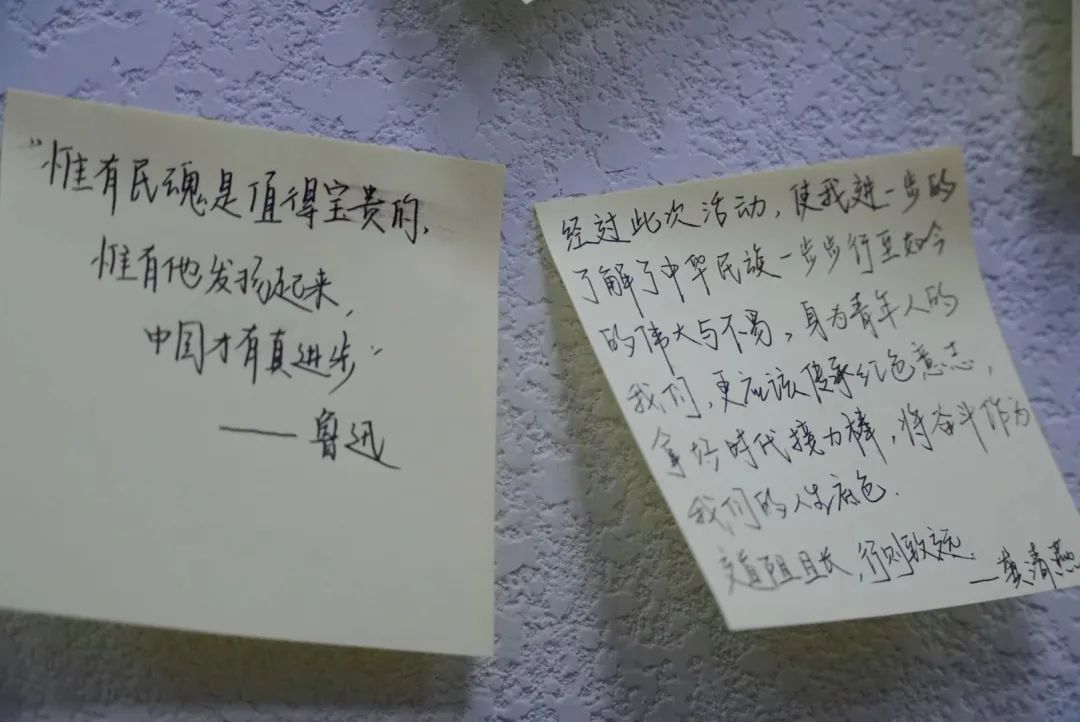 "惟有民魂是值得宝贵的,
惟有他发扬起来,
中国才有真进步"
——鲁迅
经过此次活动,使我进一步的
了解了中华民族一步步行至如今
的伟大与不易,身为青年人的
我们,更应该传承红色意志,
拿好时代接力棒,将奋斗作为
我们的人生底色.
道阻且长,行则致远.
—黄清燕